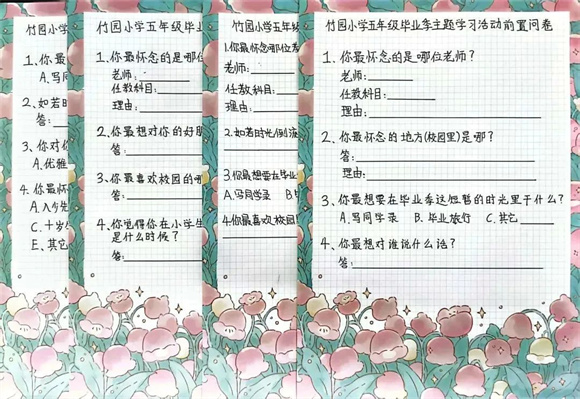 竹园小学
1、你最
A.写同
2、如若时
答:
3、你对你
A.优雅
4、你最怀
A.入学
C.十岁
E、其它
竹园小学五年级毕业
1、你最怀念的是哪位
老师:
任教科目:
理由:
2、你最想对你的好朋
答:
3、你最喜欢校园的哪
4、你觉得你在小学生
是什么时候？
答:
竹园小学五年级
1.你最怀念哪位
老师:
任教科目:
理由:
2.如若时光倒流
答:
3.你最想要在毕业
A.写同学录 B.
4.你最喜欢校园
竹园小学五年级毕业季主题学习活动前置问卷
1、你最怀念的是哪位老师？
老师:
任教科目:
理由:
2、你最怀念的地方(校园里)是哪？
答:
理由:
3、你最想要在毕业季这短暂的时光里干什么？
A.写同学录 B.毕业旅行 C.其它
4、你最想对谁说什么话？
答: